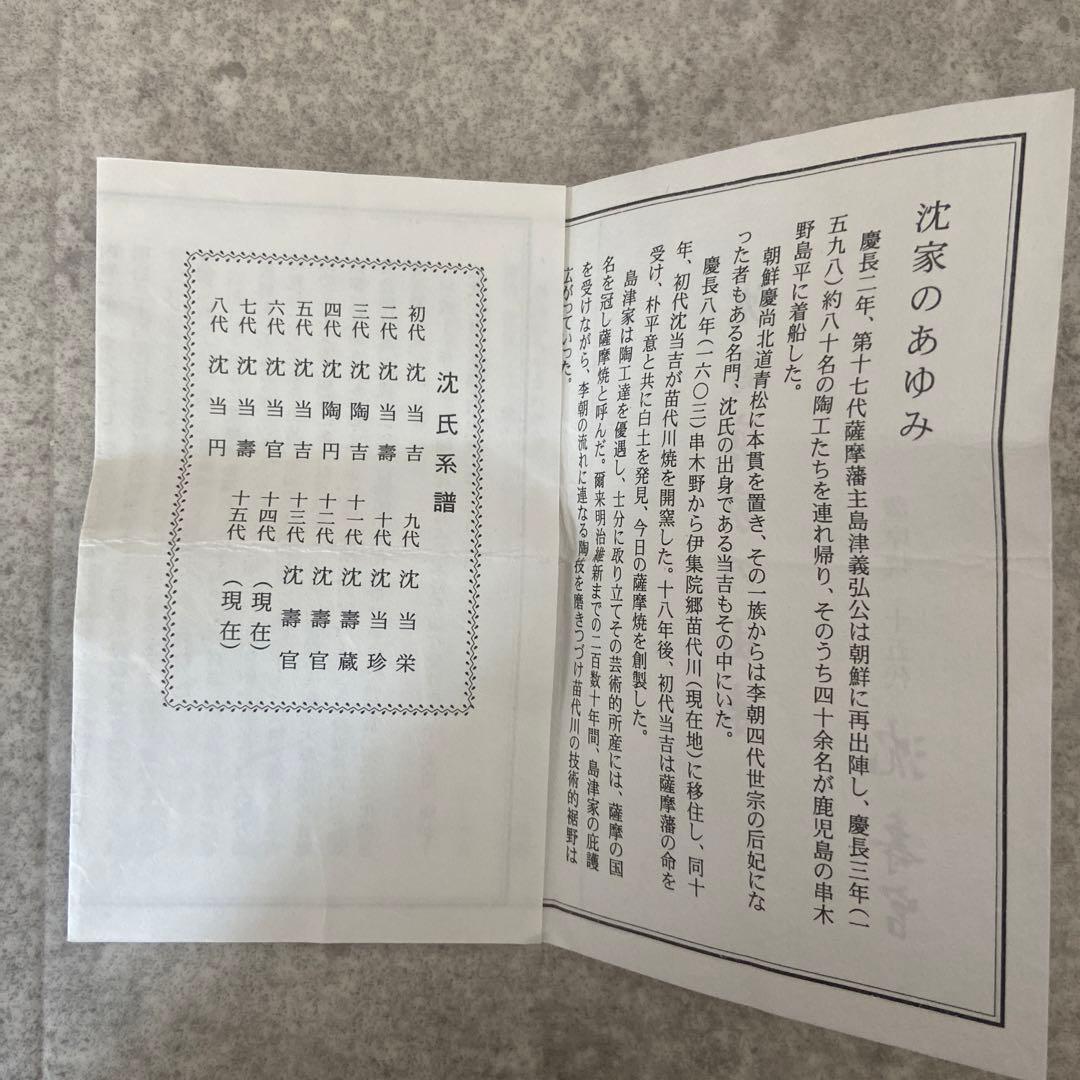 沈家のあゆみ
慶長二年、第十七代薩摩藩主島津義弘公は朝鮮に再出陣し、慶長三年（一
五九八）約八十名の陶工たちを連れ帰り、そのうち四十余名が鹿児島の串木
野島平に着船した。
朝鮮慶尚北道青松に本貫を置き、その一族からは李朝四代世宗の后妃にな
った者もある名門、沈氏の出身である当吉もその中にいた。
慶長八年（一六〇三）串木野から伊集院郷苗代川（現在地）に移住し、同十
年、初代沈当吉が苗代川焼を開窯した。十八年後、初代当吉は薩摩藩の命を
受け、朴平意と共に白土を発見、今日の薩摩焼を創製した。
島津家は陶工達を優遇し、士分に取り立てその芸術的所産には、薩摩の国
名を冠し薩摩焼と呼んだ。爾来明治維新までの二百数十年間、島津家の庇護
を受けながら、李朝の流れに連なる陶技を磨きつづけ苗代川の技術的裾野は
広がっていった。
沈氏系譜
初代 沈当吉
二代 沈当壽
三代 沈陶吉
四代 沈陶円
五代 沈当吉
六代 沈当官
七代 沈当壽
八代 沈当円
九代 沈当栄
十代 沈当珍
十一代 沈壽蔵
十二代 沈壽官
十三代 沈壽官
十四代 （現在）
十五代 （現在）